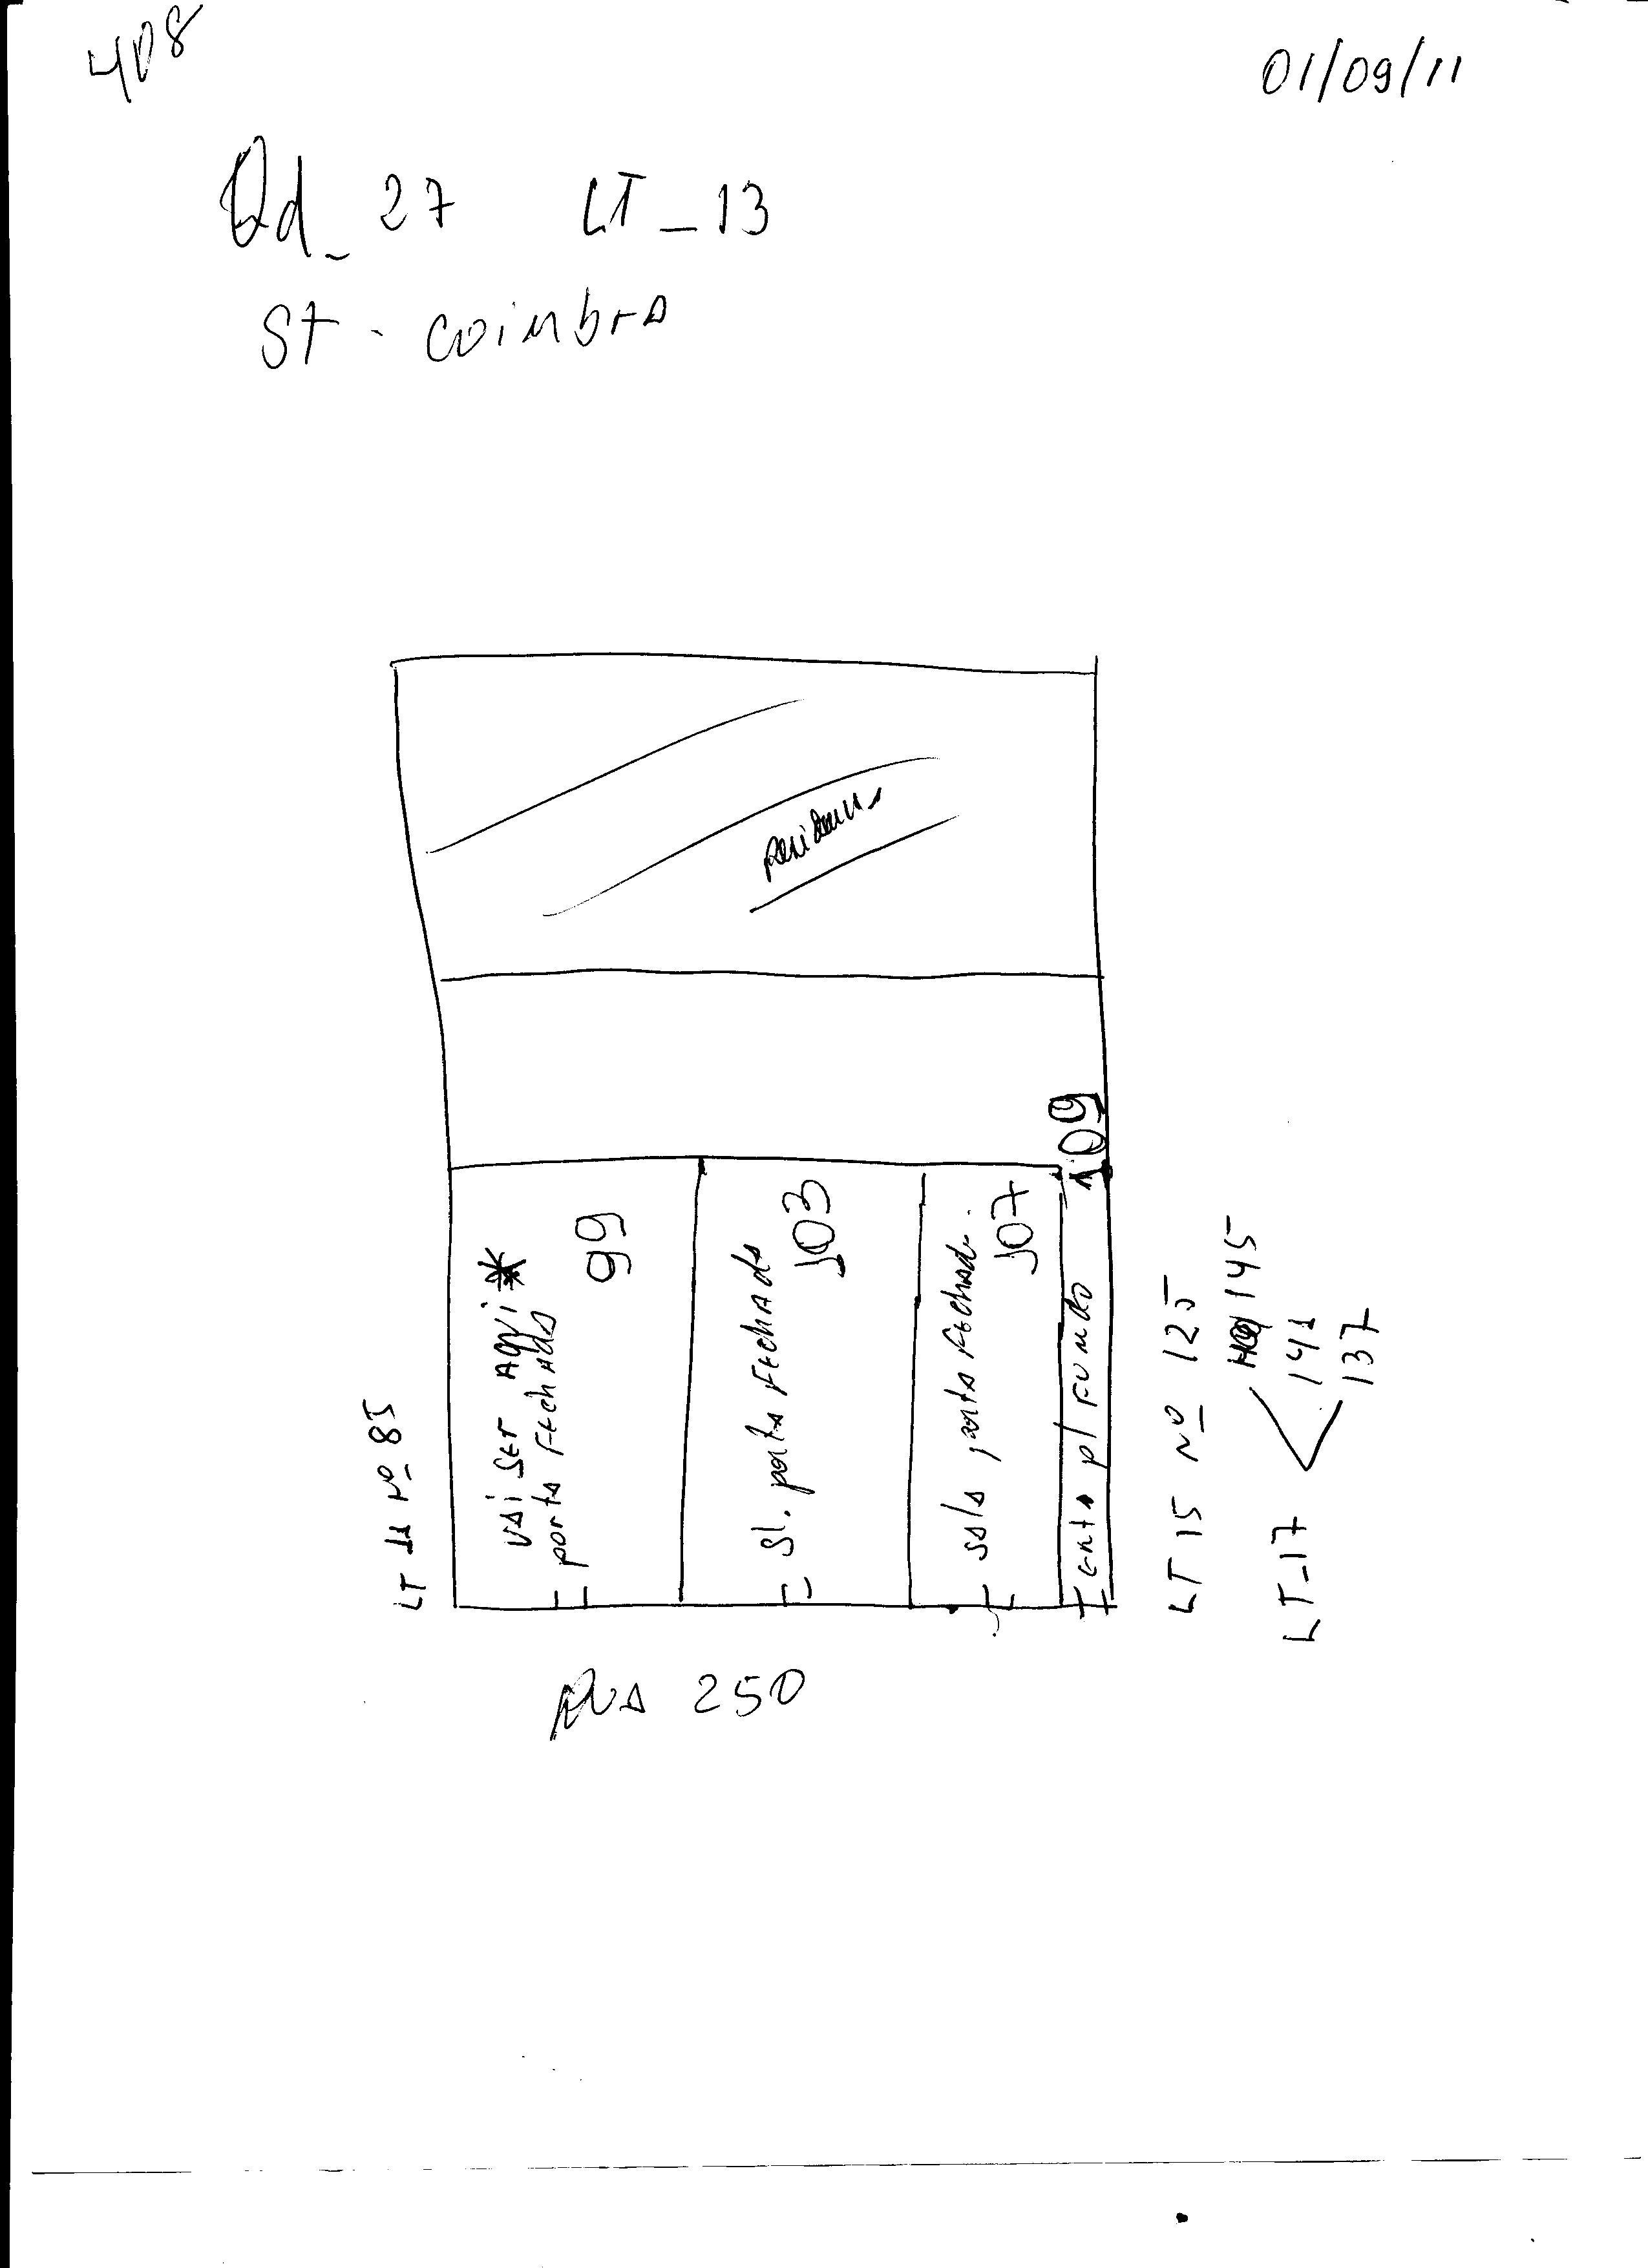 408
01/09/11
Qd_ 27 LT_13
St - coimbra
LT 11 Nº 85
vai ser Aqui *
porta Fechada
99
Sl. porta Fechada
103
sala porta Fechada.
107
Ent p/ Fundo
109
LT 15 Nº 125
LT_17
145
141
137
Rua 250